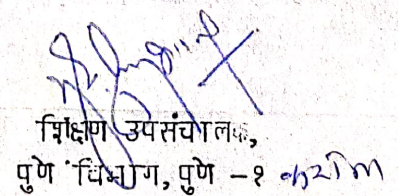 शिक्षण उपसंचालक,
पुणे विभाग, पुणे -१